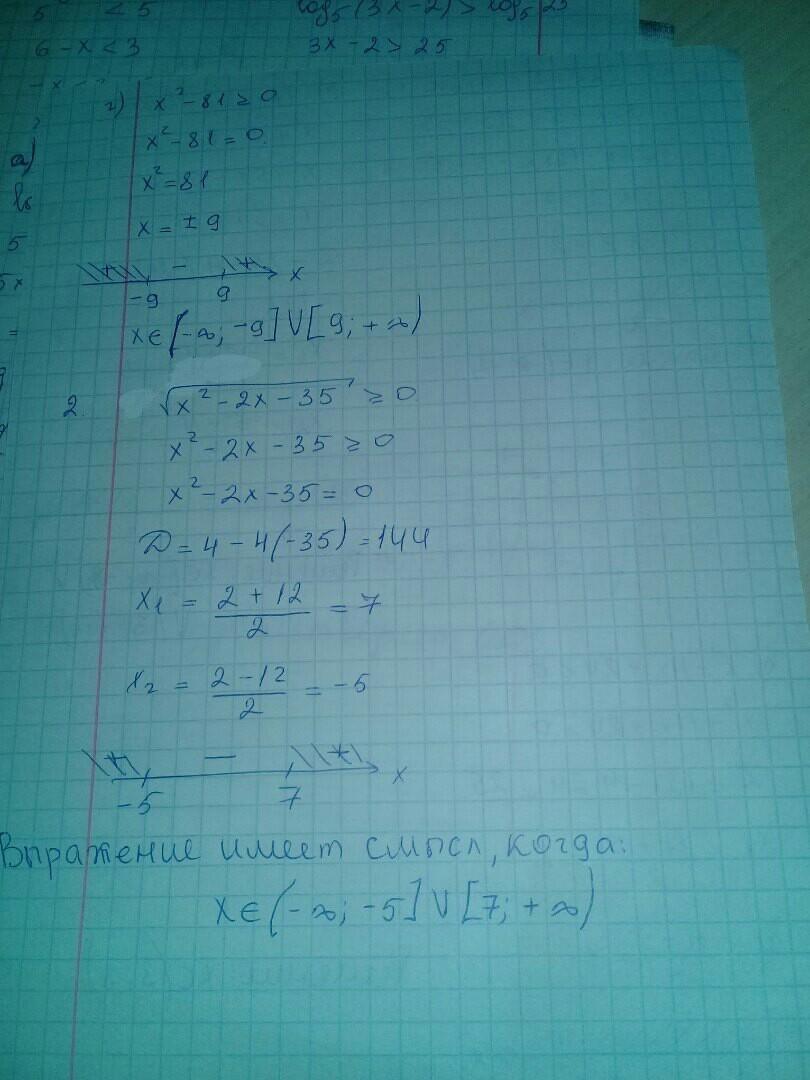 5 < 5
log₅(3x-2) > log₅ 25
6-x<3
3x-2>25
г) x²-81≥0
x²-81=0.
x²=81
x=±9
+ - + x
-9 9
x∈(-∞; -9]V[9; +∞)
2. √x²-2x-35 ≥0
x²-2x-35≥0
x²-2x-35=0
D=4-4(-35)=144
x₁ = (2+12)/2 = 7
x₂ = (2-12)/2 = -5
+ — + x
-5 7
Впражение имеет смысл, когда:
x∈(-∞; -5]V[7; +∞)
а)
5
5x
=